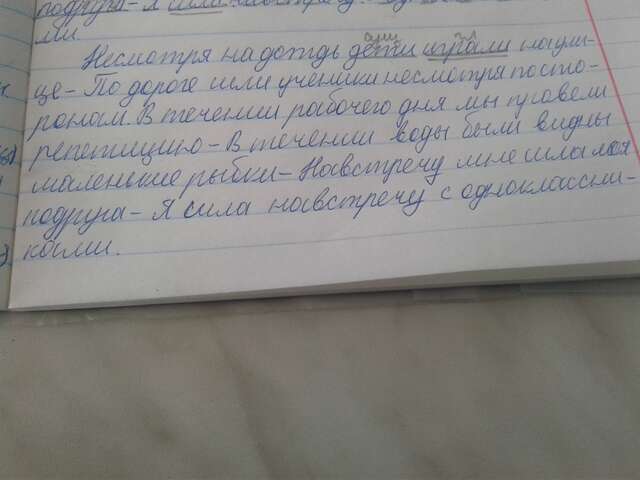 подруга – Я шла навстречу с
ми.
Несмотря на дождь дети играли на ули-
це – По дороге шли ученики несмотря посто-
ронам. В течении рабочего дня мы провели
репетицию – В течении воды были видны
маленькие рыбки – Навстречу мне шла моя
подруга – Я сила навстречу с одноклассни-
ками.